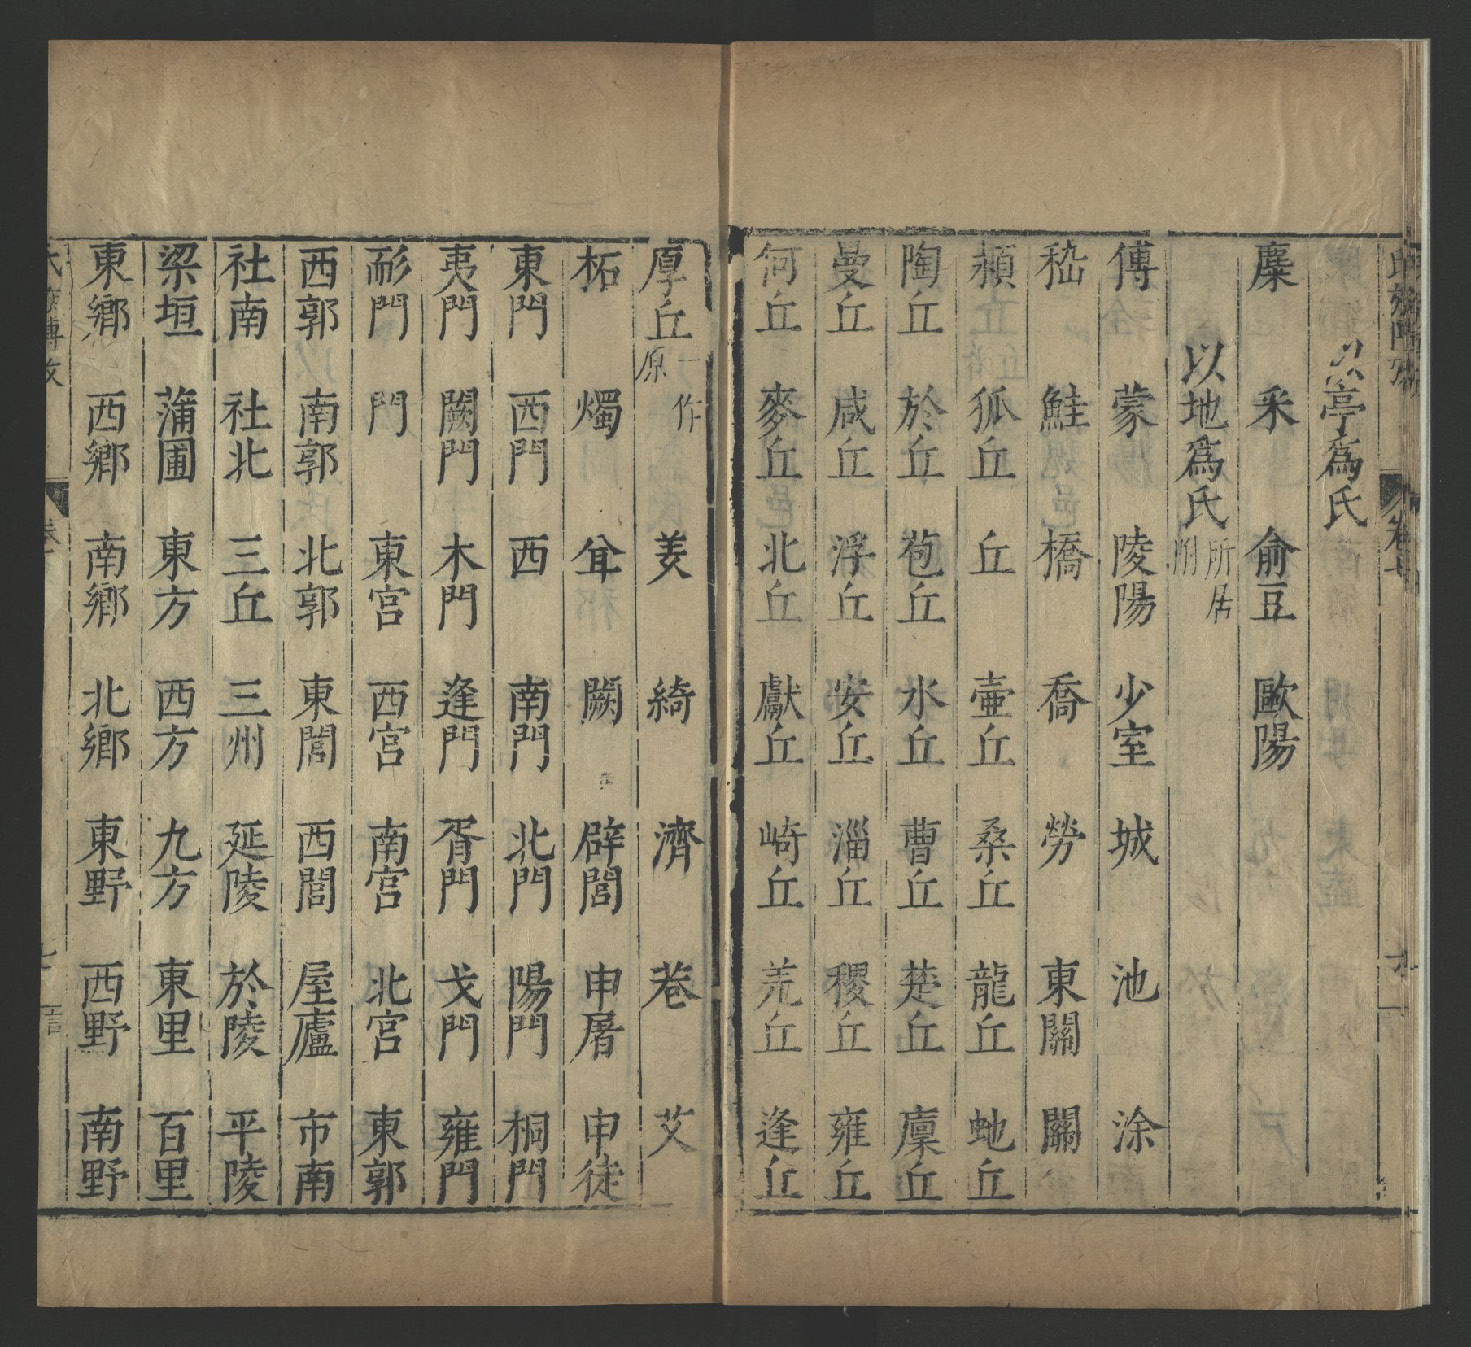 以亭爲氏
麋 采 俞豆 歐陽
以地爲氏 所居附
傅 蒙 陵陽 少室 城 池 涂
嵇 鮭 橋 喬 勞 東關 關
潁丘 狐丘 丘 壷丘 桑丘 龍丘 虵丘
陶丘 於丘 苞丘 水丘 曹丘 楚丘 廩丘
曼丘 咸丘 浮丘 安丘 淄丘 稷丘 雍丘
何丘 麥丘 北丘 獻丘 崎丘 羌丘 逢丘
厚丘 一作原 羑 綺 濟 巷 艾
柘 燭 耸 闕 辟閭 申屠 申徒
東門 西門 西 南門 北門 陽門 桐門
夷門 闕門 木門 逢門 胥門 戈門 雍門
耏門 門 東宮 西宮 南宮 北宮 東郭
西郭 南郭 北郭 東閭 西閭 屋廬 市南
社南 社北 三丘 三州 延陵 於陵 平陵
梁垣 蒲圃 東方 西方 九方 東里 百里
東鄉 西鄉 南鄉 北鄉 東野 西野 南野